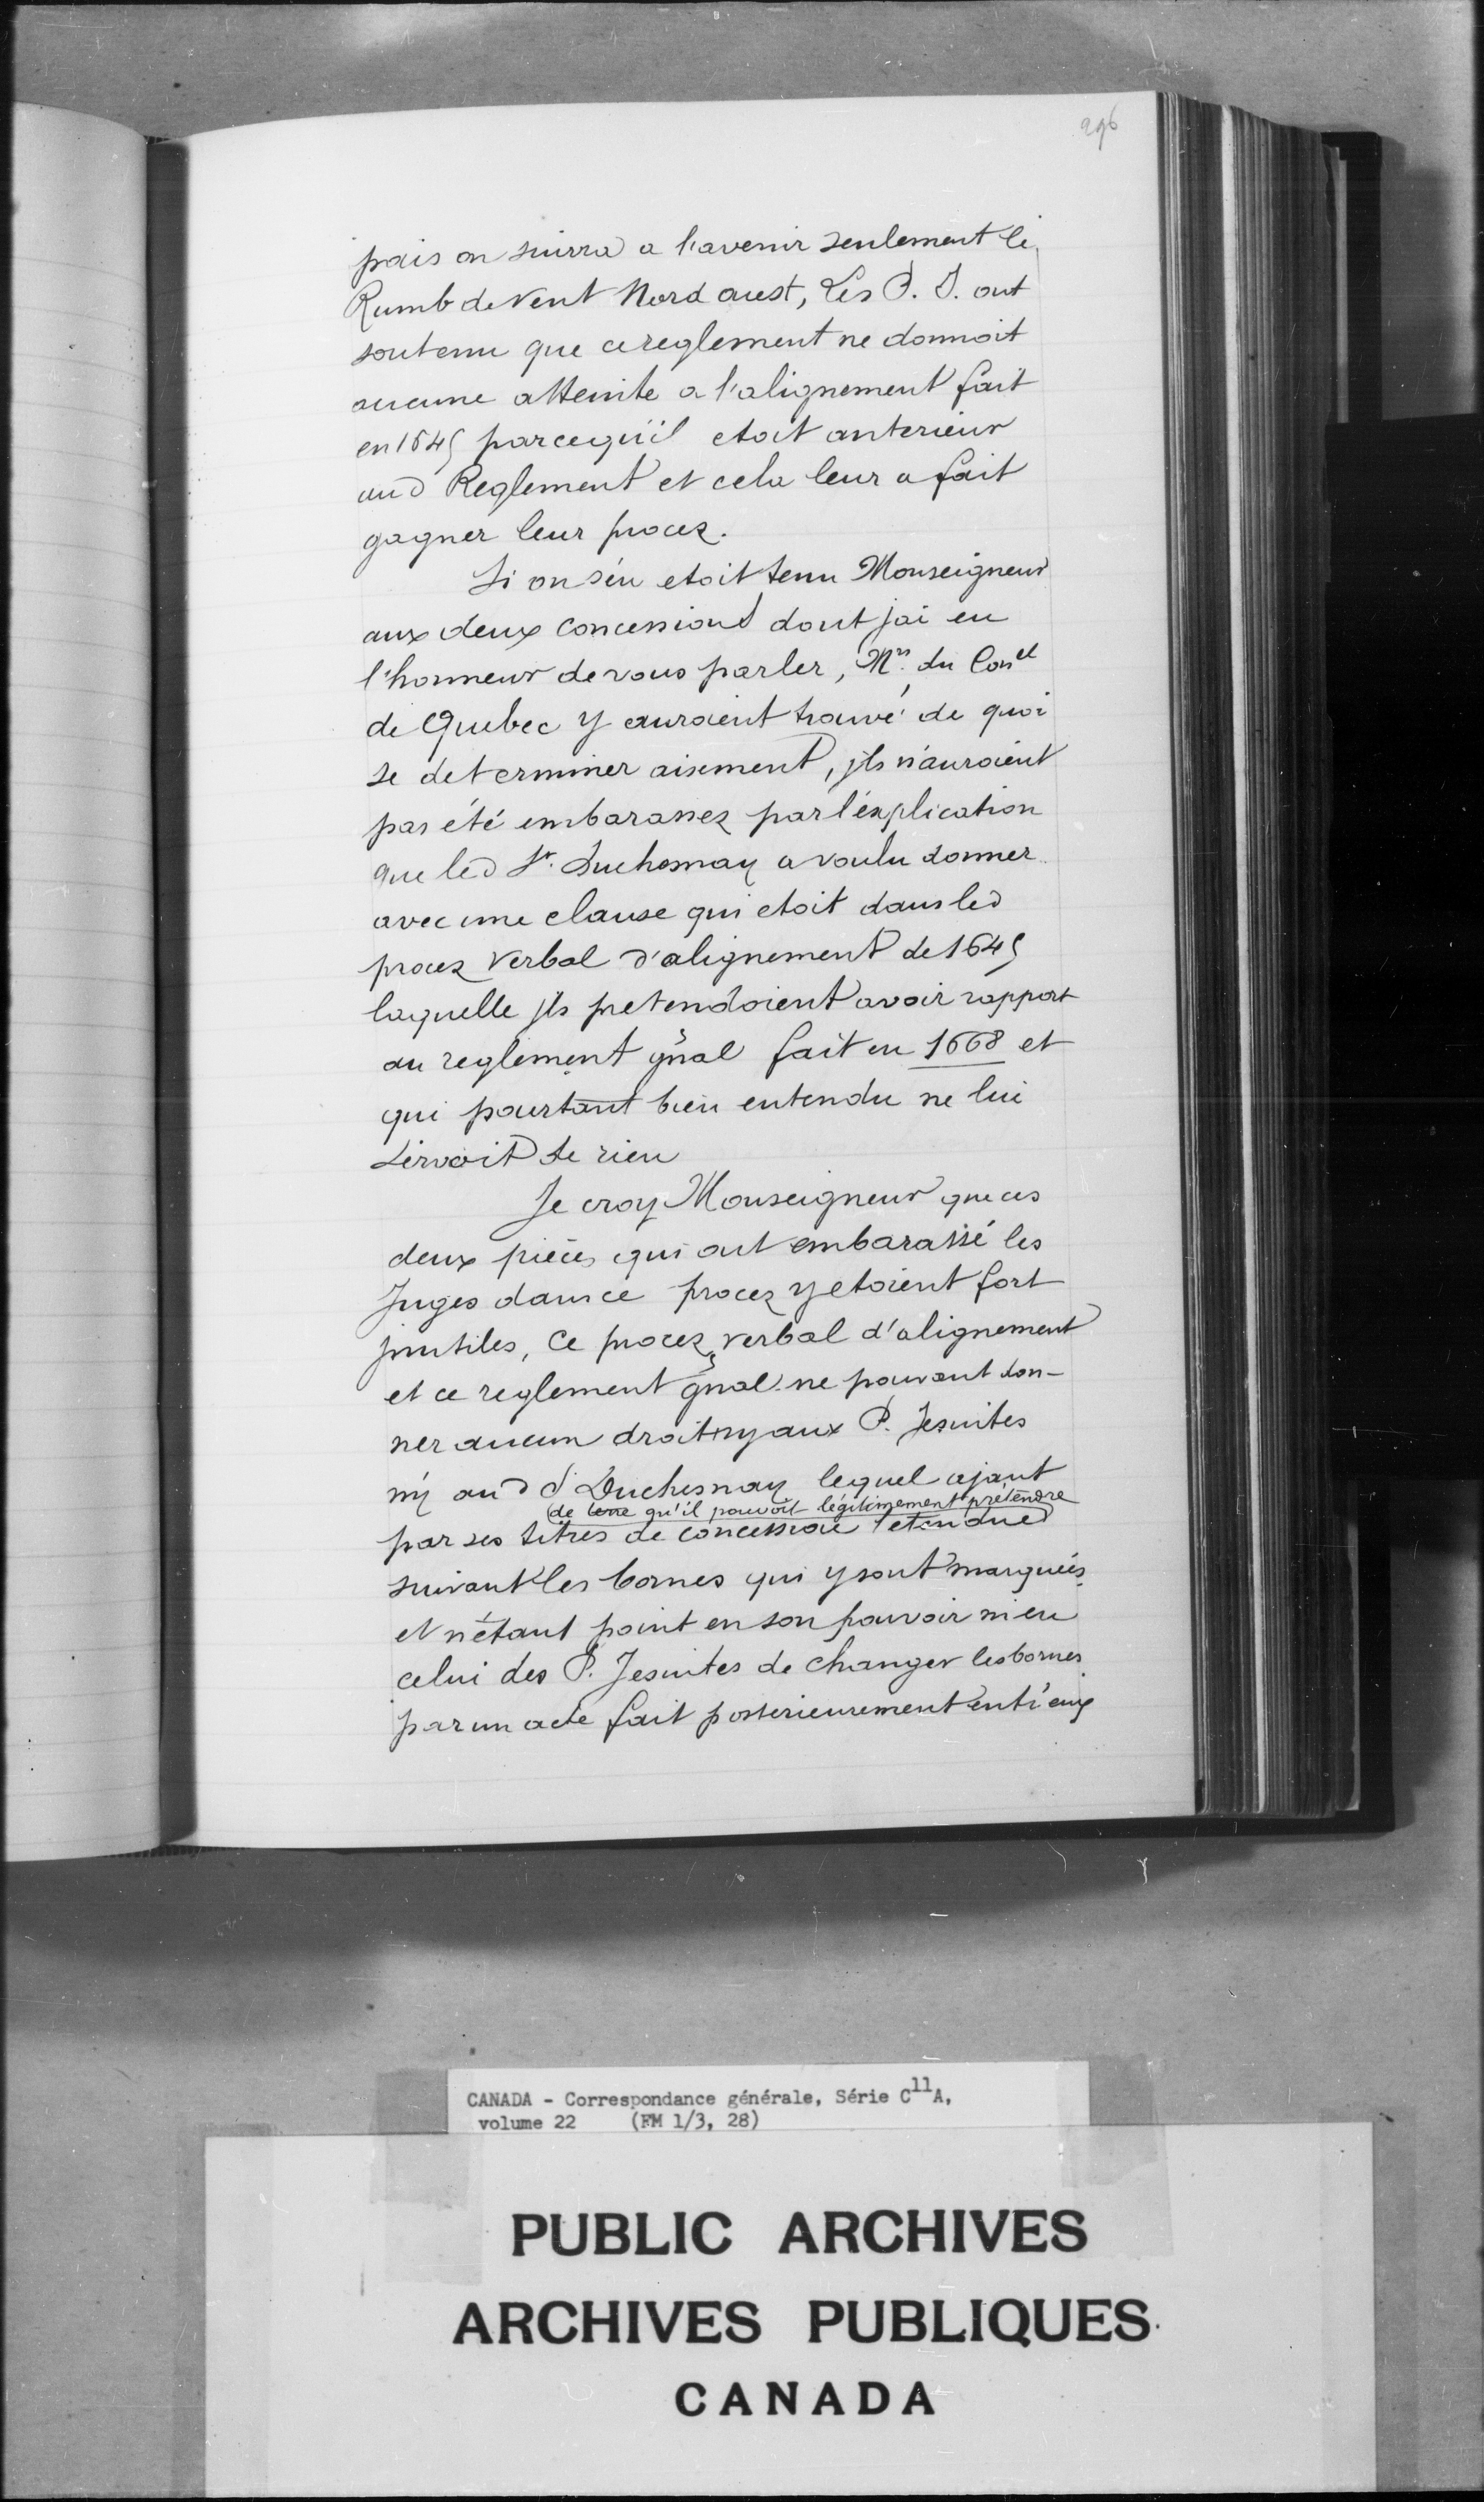 296
pais on suivra a l'avenir seulement le
Rumb de vent Nord ouest, Les P. J. ont
soutenu que ce reglement ne donnoit
aucune atteinte a l'alignement fait
en 1645 parcequ'il etoit anterieur
aud Reglement et cela leur a fait
gagner leur procez.
Si on s'en etoit tenu Monseigneur
aux deux concessions dont j'ai eu
l'honneur de vous parler, Mrs. du Conel
de Quebec y auroient trouvé de quoi
se determiner aisement, jls n'auroient
pas été embarassez par l'éxplication
que led Sr. Duchesnay a voulu donner
avec une clause qui etoit dans led
procez verbal d'alignement de 1645
laquelle jls pretendoient avoir rapport
au reglement gñal fait en 1668 et
qui pourtant bien entendu ne lui
servoit de rien
Je croy Monseigneur que ces
deux pièces qui ont embarassé les
Juges dans ce procez y etoient fort
jnutiles, Ce procez verbal d'alignement
et ce reglement gñal ne pouvant don-
ner aucun droit ny aux P. Jesuites
ny aud S. Duchesnay lequel ajant
de terre qu'il pouvoit légitimement prétendre
par ses titres de concession l'etendue
suivant les bornes qui y sont marquées
et n'étant point en son pouvoir ni en
celui des P. Jesuites de changer les bornes
par un acte fait posterieurement entr'eux
CANADA - Correspondance générale, Série C11A,
volume 22 (FM 1/3, 28)
PUBLIC ARCHIVES
ARCHIVES PUBLIQUES
CANADA